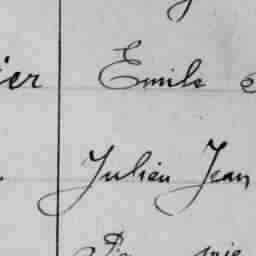 ier Emile
Julien Jean